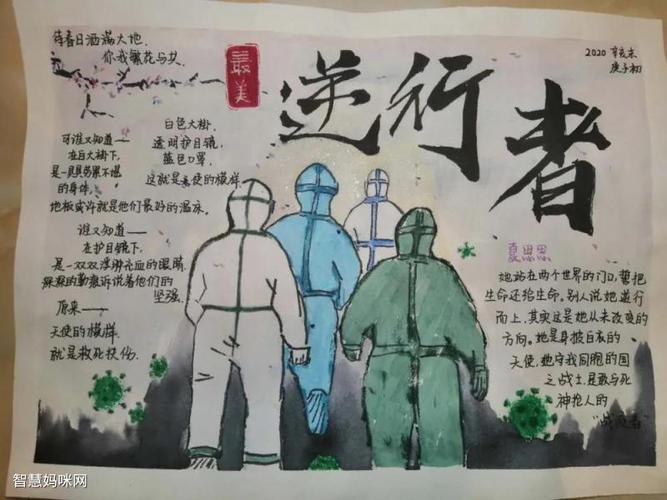 待春日洒满大地.
你我繁花与共
最美
逆行者
2020 辛亥末
庚子初
白色大褂.
透明护目镜.
蓝色口罩.
这就是天使的模样.
可谁又知道——
在白大褂下.
是一具具劳累不堪
的身体.
地板或许就是他们最好的温床.
谁又知道——
在护目镜下.
是一双双浮肿充血的眼睛.
深深的勒痕诉说着他们的
坚强.
原来——
天使的模样.
就是救死扶伤.
夏思思
她站在两个世界的门口,誓把
生命还给生命。别人说她逆行
而上,其实这是她从未改变的
方向。她是身披白衣的
天使,她守我同胞的国
之战士,是敢与死
神抢人的
智慧妈咪网